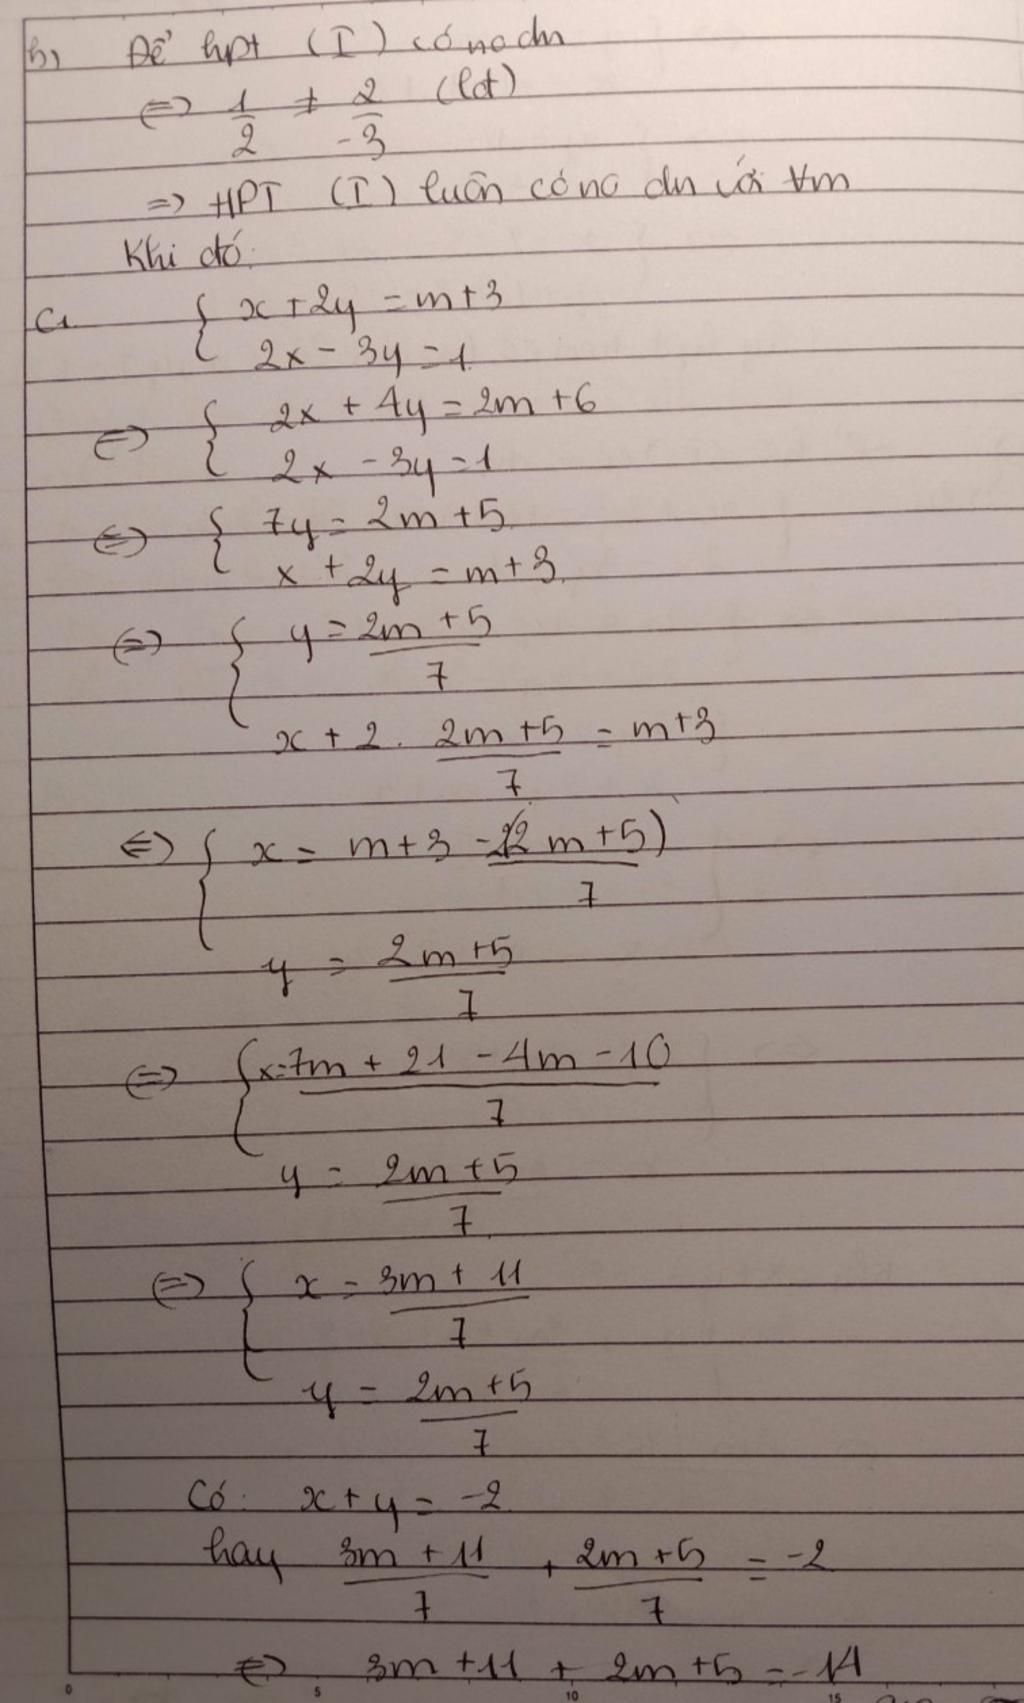 b) Để hpt (I) có no dn
<=> 1/2 ≠ 2/-3 (lđt)
=> HPT (I) luôn có no dn với ∀m
Khi đó:
C1. { x + 2y = m+3
2x - 3y = 1
<=> { 2x + 4y = 2m + 6
2x - 3y = 1
<=> { 7y = 2m + 5
x + 2y = m+3
<=> { y = (2m + 5)/7
x + 2 . (2m + 5)/7 = m+3
<=> { x = m+3 - 2(2m+5)/7
y = (2m + 5)/7
<=> { x = (7m + 21 - 4m - 10)/7
y = (2m + 5)/7
<=> { x = (3m + 11)/7
y = (2m + 5)/7
Có: x + y = -2
hay (3m + 11)/7 + (2m + 5)/7 = -2
<=> 3m + 11 + 2m + 5 = -14
0 5 10 15